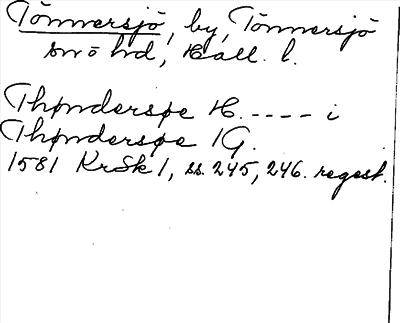 Tönnersjö, by, Tönnersjö
sn o hd, Hall. l.
Thøndersøe H. ---- i
Thøndersøe IG.
1581 KrSk 1, ss. 245, 246. regest.